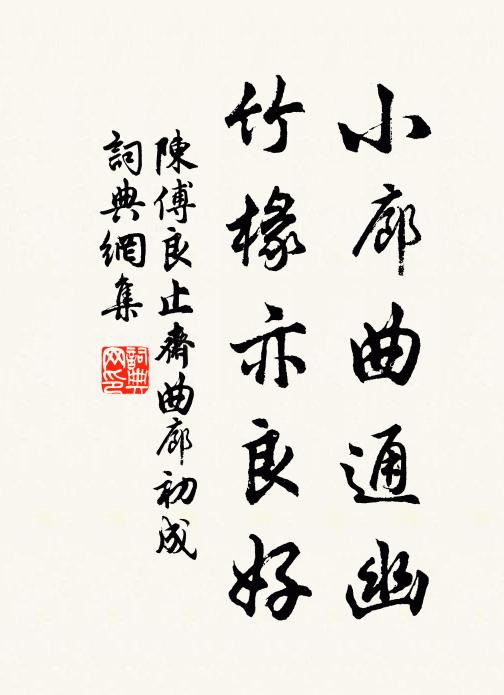 小廊曲通幽
竹椽亦良好
陳傅良止齋曲廊初成
詞典網集
詞典网印